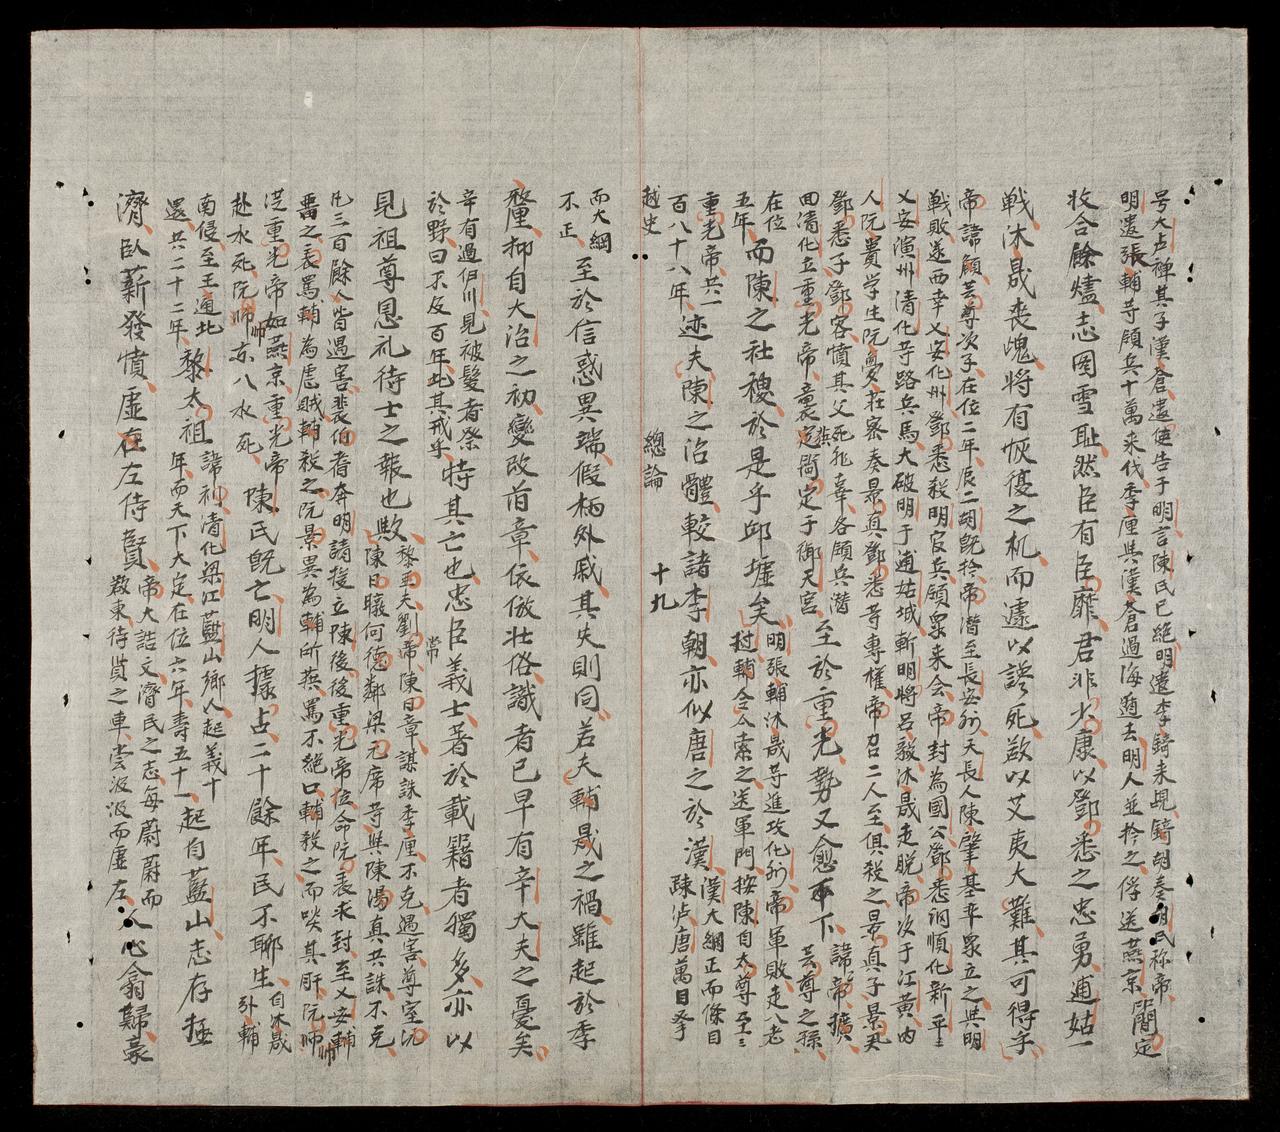 号大虞禅其子漢倉遣使告于明言陳氏已絕明遣李錡未覘錡胡奏胡氏称帝
明遣張輔寺領兵十萬来伐季厘與漢蒼過海遁去明人並拎之俘送燕京簡定
收合餘燼志图雪恥然臣有臣靡君非少康以鄧悉之忠勇逋姑一
戰沐晟丧魄将有恢復之机而遽以讒死欲以艾夷大難其可得乎
帝諱顗芸尊次子在位二年辰二胡既拎帝潜至長安州天長人陳肇基率眾立之與明
戰敗遂西幸乂安化州鄧悉殺明官兵領眾来会帝封為國公鄧悉詗順化新平
乂安演州清化寺路兵馬大破明于逋姑城斬明将呂毅沐晟走脱帝次于江黄内
人阮貴学生阮夢荘密奏景真鄧悉寺專權帝召二人至俱殺之景真子景異
鄧悉子鄧容憤其父死非辜各領兵潜
囬清化立重光帝襲定簡定于御天宮
至於重光勢又愈下
諱帝擴
芸尊之孫
在位
五年
而陳之社稷於是乎邱墟矣
明張輔沐晟寺進攻化州帝軍敗走入老
挝輔令人索之送軍門按陳自太尊至
重光帝共一
百八十八年
迹夫陳之治體較諸李朝亦似唐之於漢
漢大綱正而條目
踈泸唐萬目孚
越史
總論
十九
而大綱
不正
至於信惑異端假柄外戚其失則同若夫輔晟之禍雖起於季
釐抑自大治之初變改旧章依倣壮俗識者已早有辛大夫之憂矣
辛有過伊川見被髮者祭
於野曰不及百年此其戎乎
特其亡也忠臣義士著於載籍者獨多亦以
見祖尊恩礼待士之報也欤
黎亜夫劉常陳日章謀誅季厘不克遇害尊室沆
陳日暾何德鄰梁元席寺與陳渴真共誅不克
凡三百餘人皆遇害裴伯耆奔明請援立陳後後重光帝位命阮表求封至乂安輔
畱之表罵輔為虐賊輔殺之阮景異為輔所执罵不絕口輔殺之而啖其肝阮帅
從重光帝如燕京重光帝
赴水死阮帅亦入水死
陳氏既亡明人據占二十餘年民不聊生
自沐晟
張輔
南侵至王通北
還共二十二年
黎太祖
諱利清化梁江藍山鄉人起義十
年而天下大定在位六年壽五十一
起自藍山志存拯
濟臥薪發憤虚在左侍賢
帝大誥文濟民之志每蔚蔚而
数東待賢之車尝汲汲而虚左
人心翕歸豪